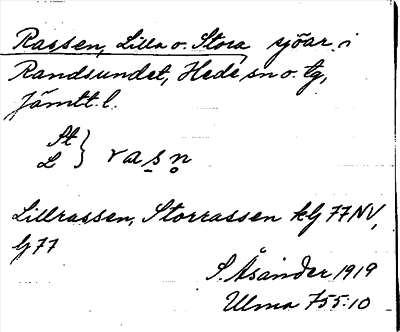 Rassen, Lilla o. Stora sjöar i
Randsundet, Hede sn o. tg,
Jämtt. l.
St
L } rasn
Lillrassen, Storrassen klg 77 NV,
lg 77
S. Åsander 1919
Ulma 755:10